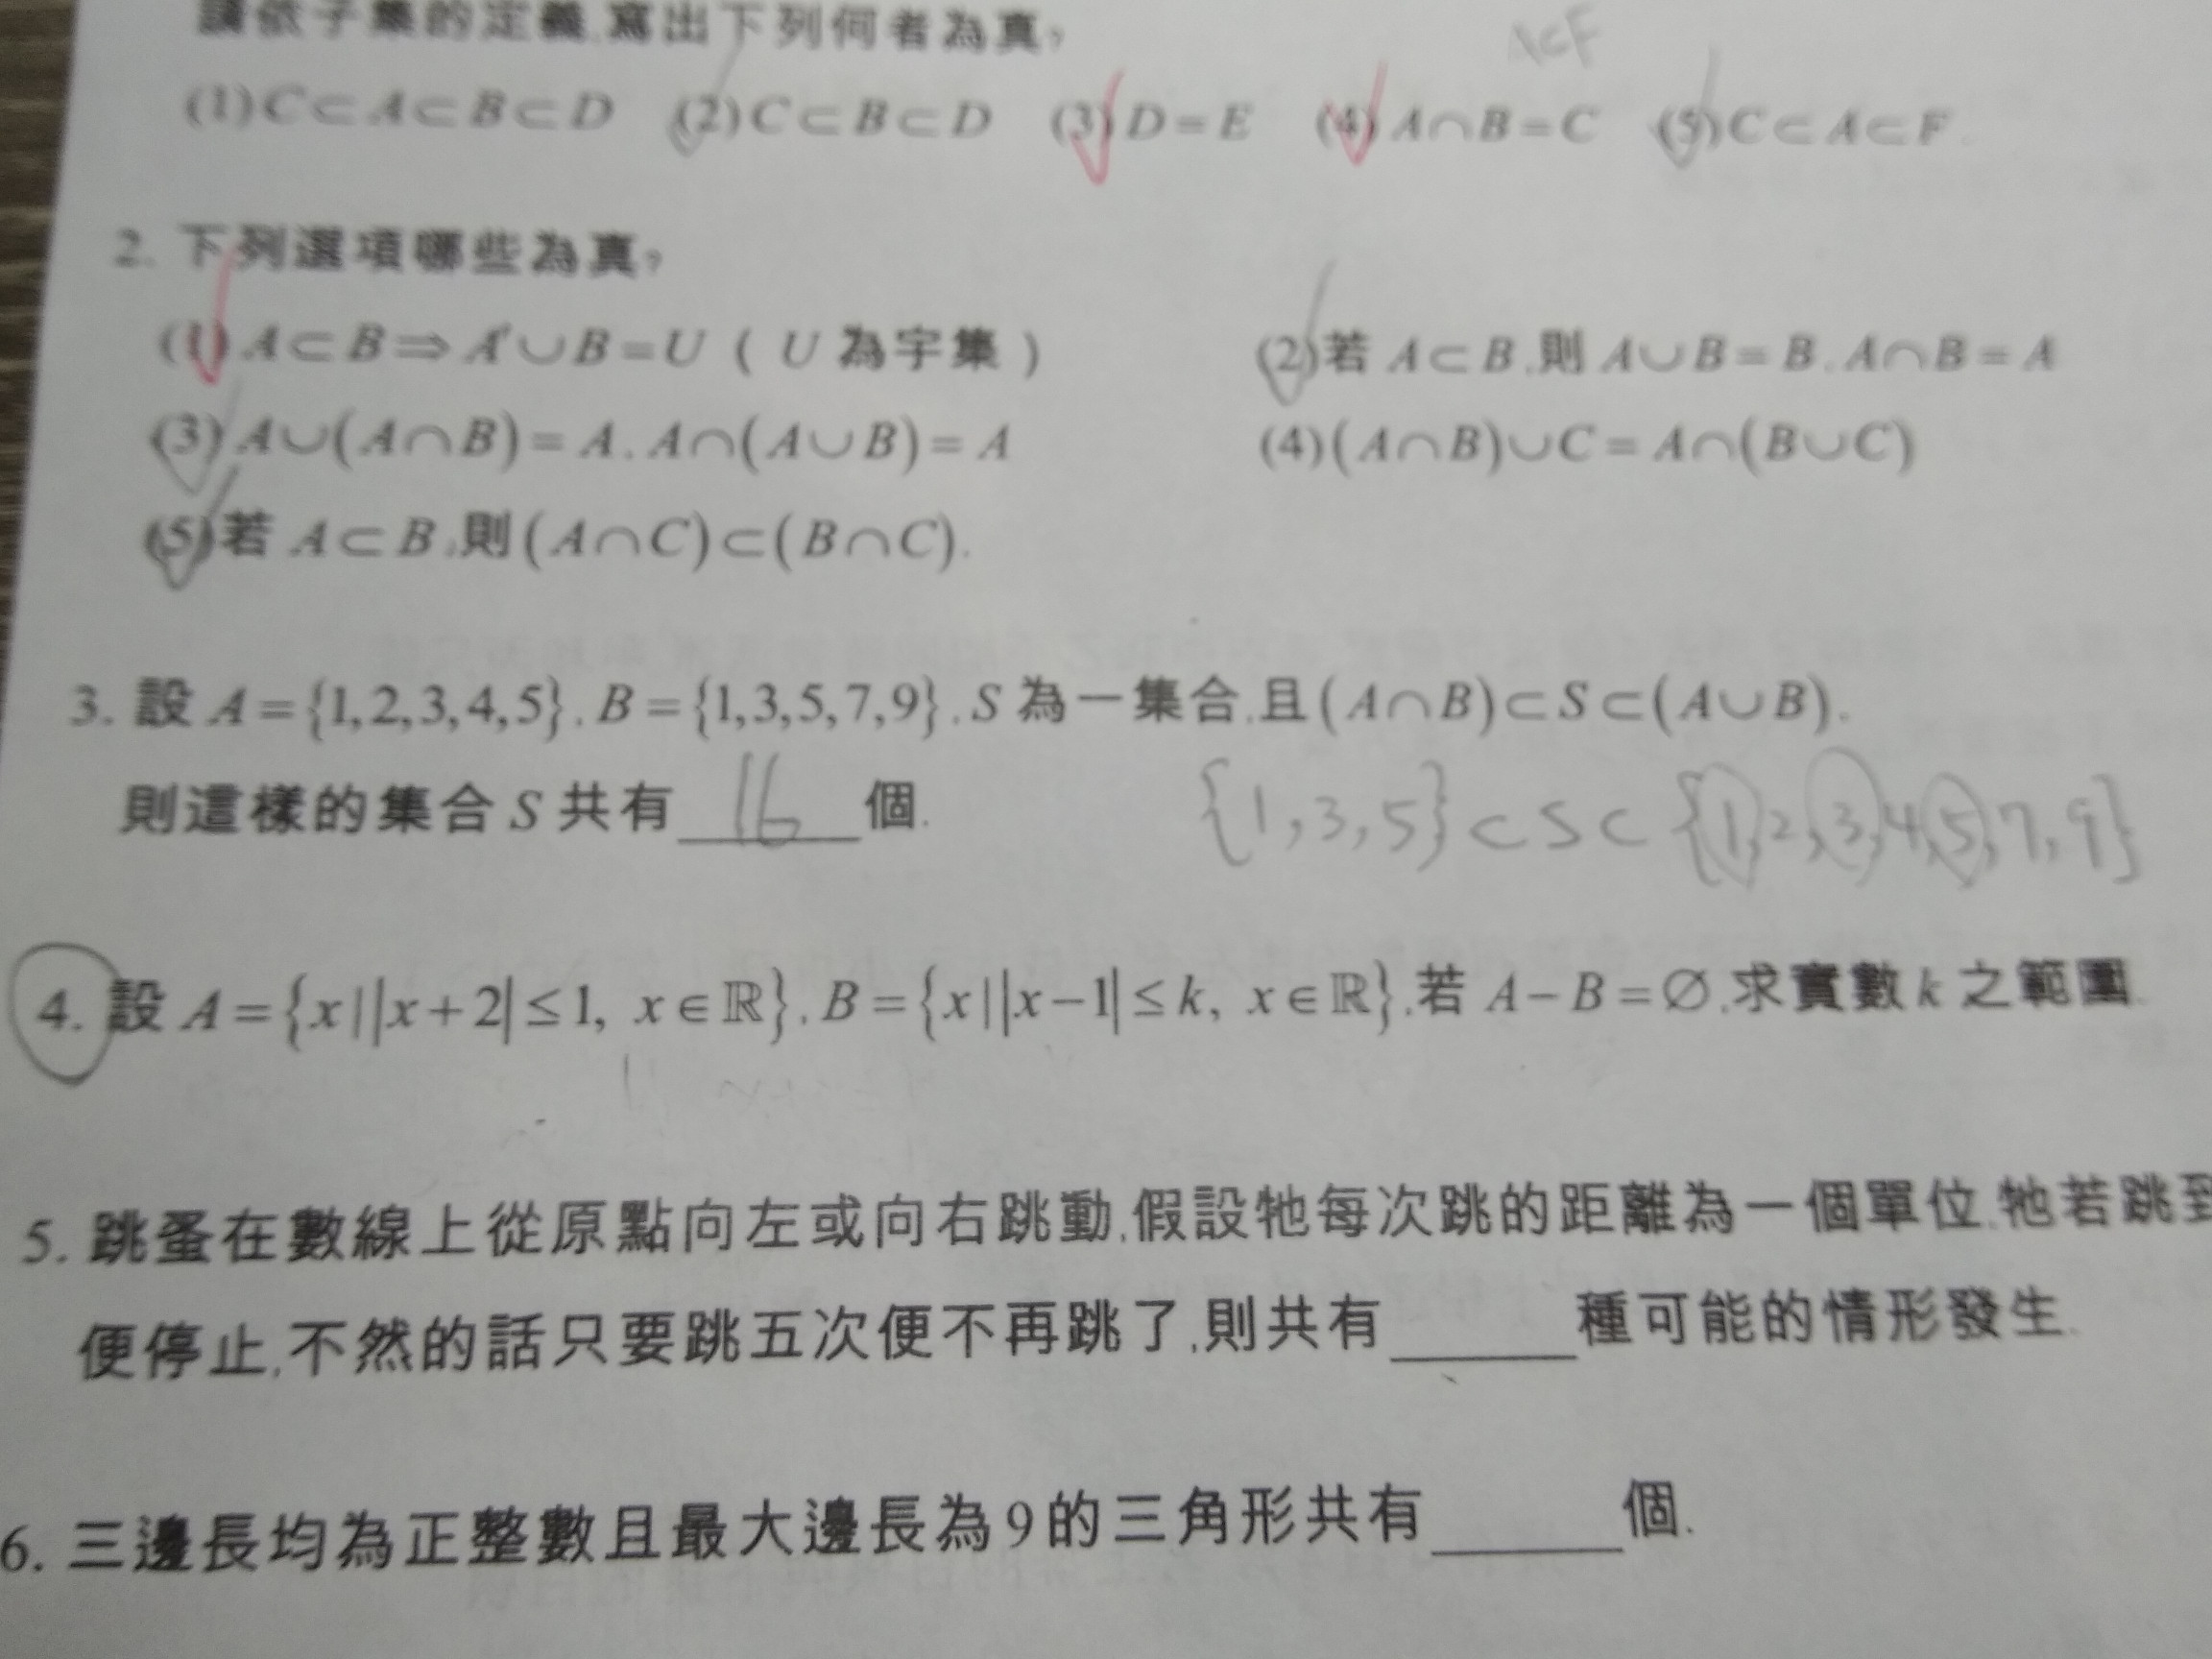 請依子集的定義,寫出下列何者為真?
A⊂F
(1) C⊂A⊂B⊂D (2) C⊂B⊂D (3) D=E (4) A∩B=C (5) C⊂A⊂F.
2. 下列選項哪些為真?
(1) A⊂B⇒A'∪B=U ( U 為宇集 ) (2)若 A⊂B,則 A∪B=B,A∩B=A
(3) A∪(A∩B)=A,A∩(A∪B)=A (4)(A∩B)∪C=A∩(B∪C)
(5)若 A⊂B,則(A∩C)⊂(B∩C).
3. 設 A={1,2,3,4,5},B={1,3,5,7,9},S 為一集合,且(A∩B)⊂S⊂(A∪B),
則這樣的集合 S 共有 16 個.
{1,3,5}⊂S⊂{1,2,3,4,5,7,9}
4. 設 A={x||x+2|≤1, x∈ℝ},B={x||x−1|≤k, x∈ℝ},若 A−B=∅,求實數 k 之範圍.
5. 跳蚤在數線上從原點向左或向右跳動,假設牠每次跳的距離為一個單位,牠若跳到
便停止,不然的話只要跳五次便不再跳了,則共有______種可能的情形發生.
6. 三邊長均為正整數且最大邊長為9的三角形共有______個.